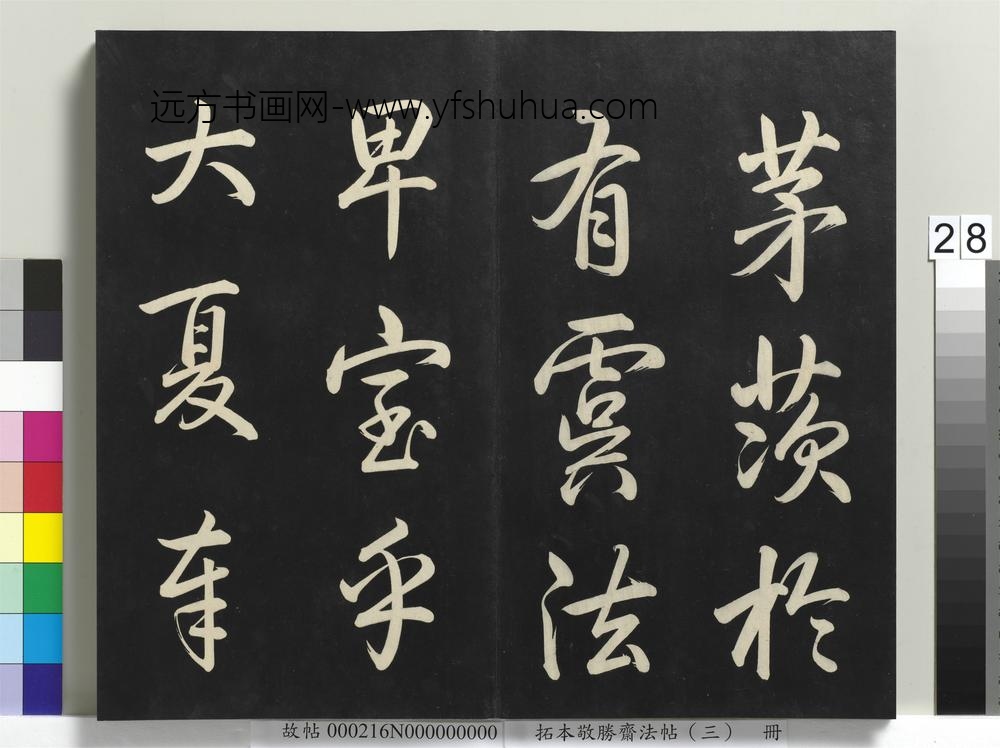 远方书画网-www.yfshuhua.com
茅茨於
有虞法
卑室乎
大夏奉
28
故帖 000216N000000000 拓本敬勝齋法帖(三) 冊